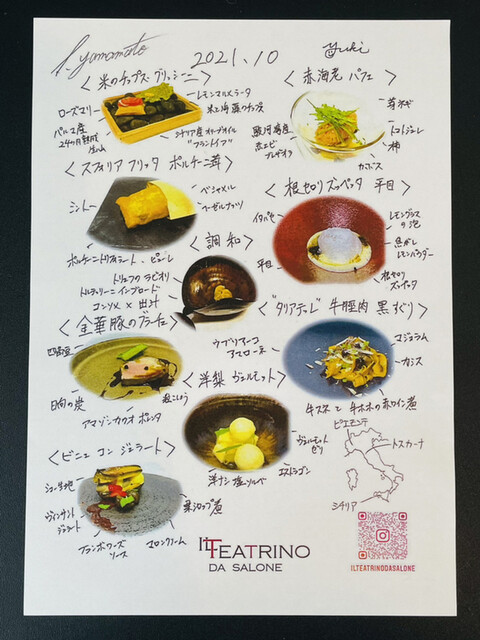 yamamoto
2021.10
yuki
<米のチップス・グリッシーニ>
ローズマリー
レモンマルメラータ
米と海藻のチップス
パルマ産
24ヶ月熟成
生ハム
シチリア産オリーブオイル
<赤海老 パフェ>
芽ネギ
柿
駿河湾産
カカバス
<スフォリア フリッタ ポルチーニ茸>
ベシャメル
ヘーゼルナッツ
ポルチーニトリフォラート・ピューレ
<根切りズッペッタ 平目>
イタパセ
レモングラス
の泡
焦がし
レモンパウダー
平目
根切り
ズッペッタ
<調和>
トリュフのラビオリ
トルテッリーニ インブロード
コンソメ × 出汁
<金華豚のブラーチェ>
四角豆
日向の炭
黒こしょう
アマゾンカカオ ポレンタ
<タリアテッレ 牛脛肉 黒すぐり>
ウブリアーコ
マジョラム
カシス
牛スネと牛ホホの赤ワイン煮
<洋梨 ヴェルモット>
ヴェルモット
ゼリ
エストラゴン
洋ナシ 塩ソルベ
<ビニェ コン ジェラート>
シュー生地
ジェラート
フランボワーズ
ソース
マロンクリーム
栗シロップ煮
ピエモンテ
トスカーナ
シチリア
IL TEATRINO
DA SALONE
ILTEATRINODASALONE